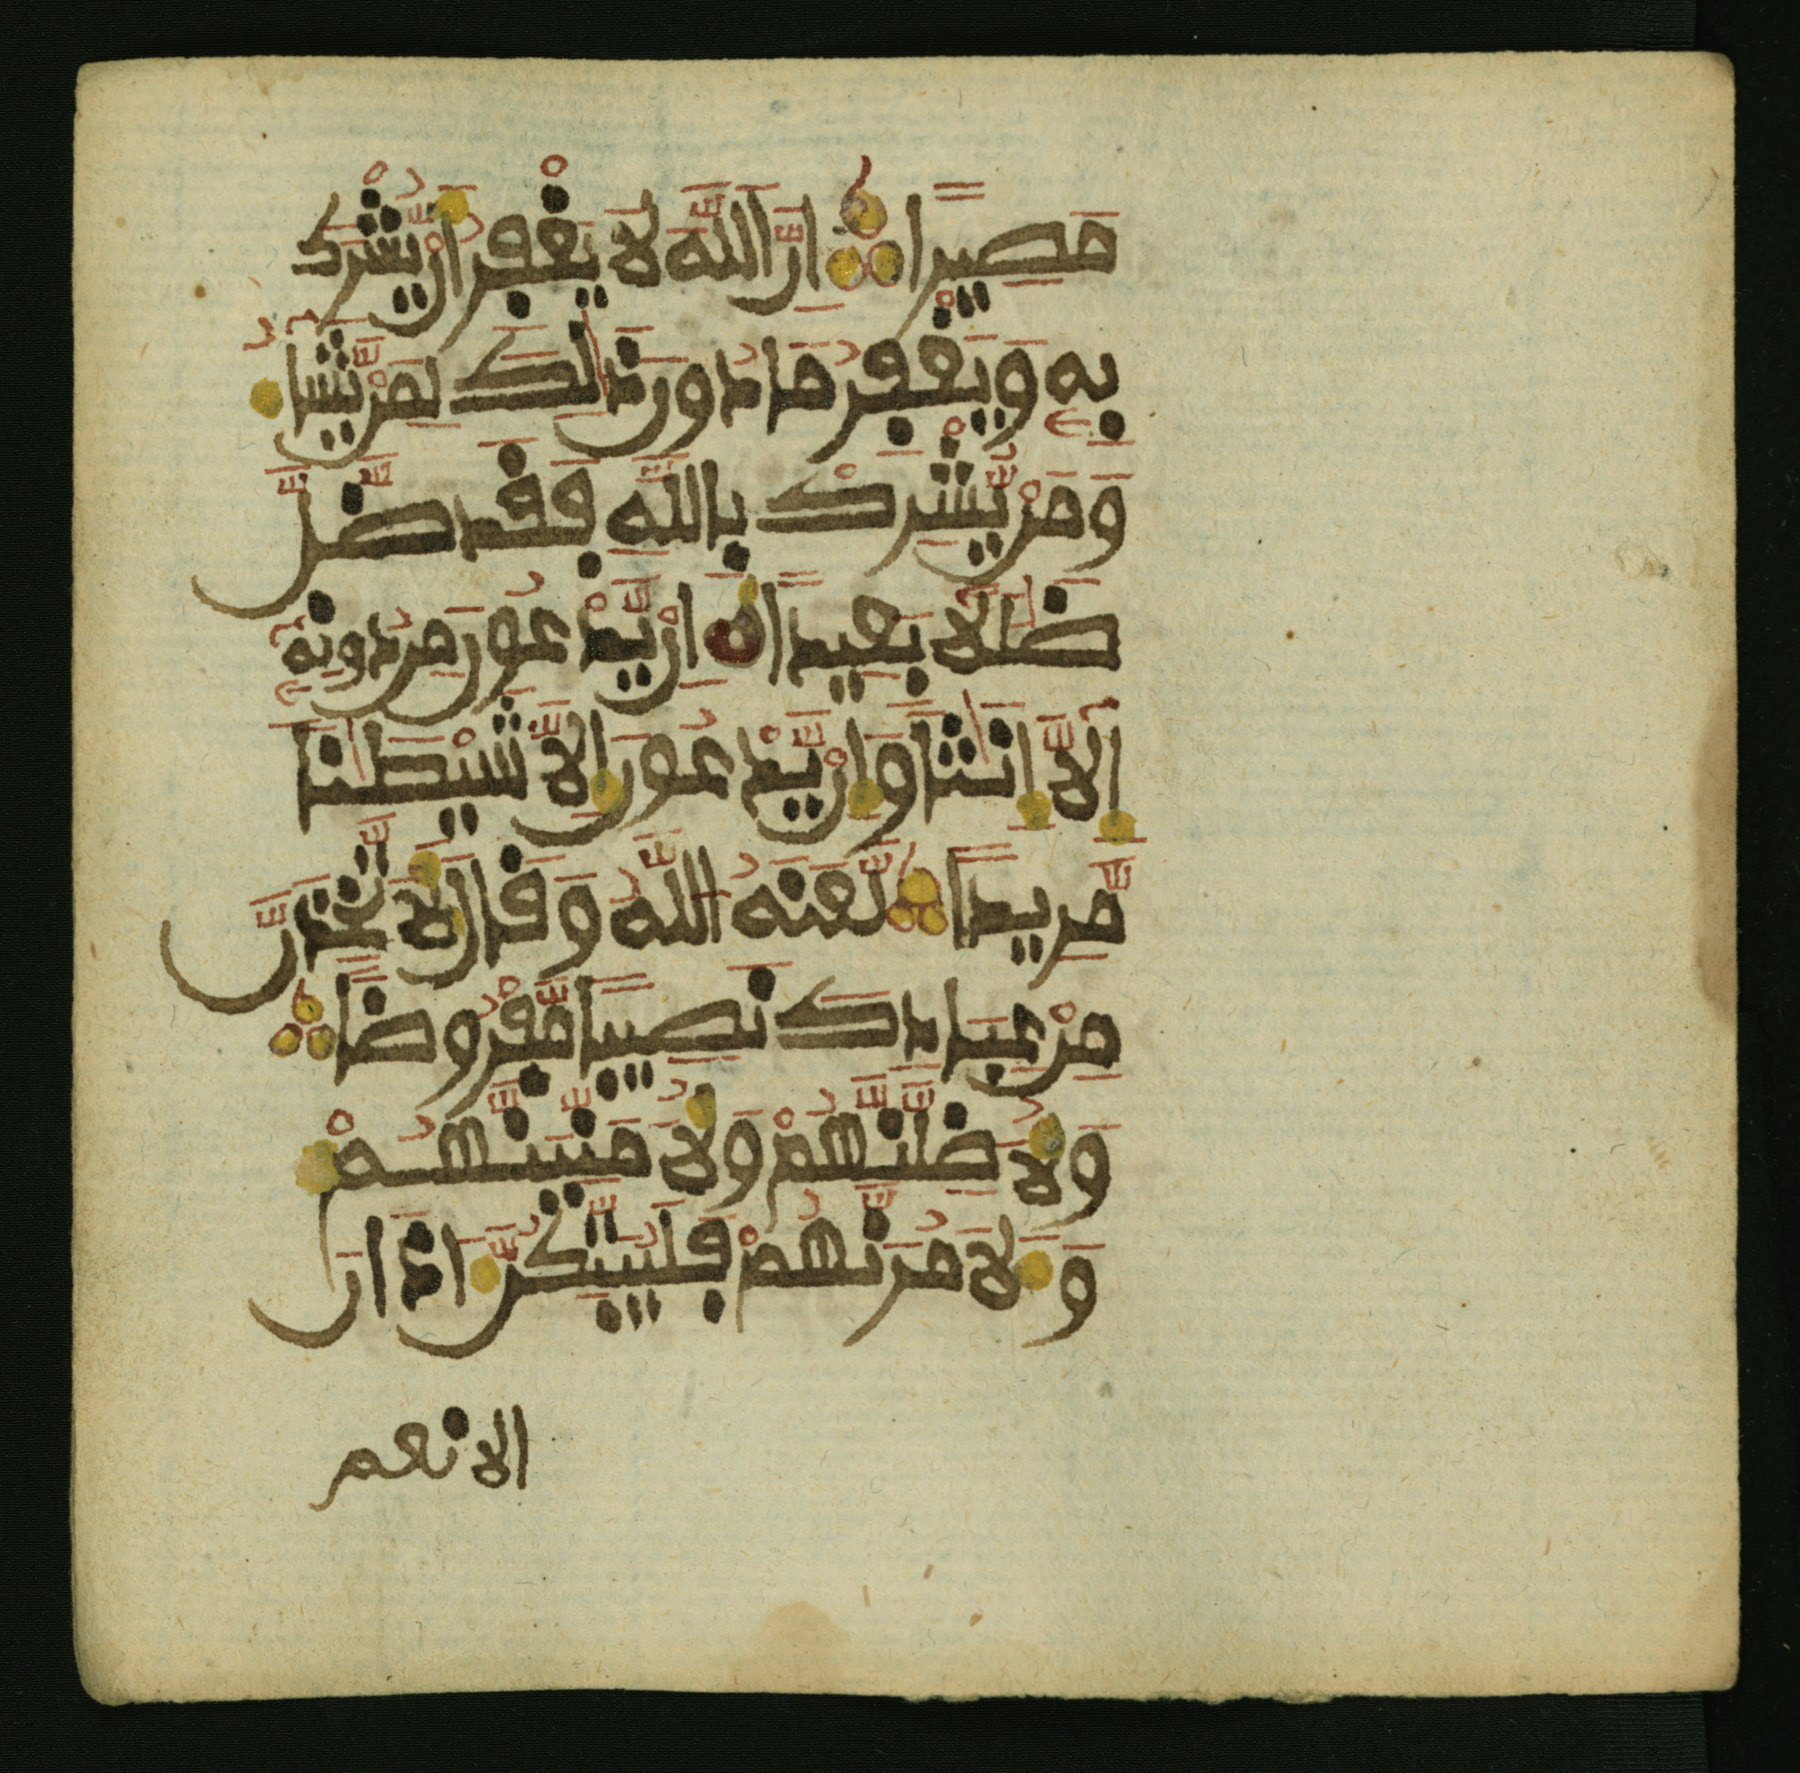 مَصِيرًا إِنَّ اللَّهَ لَا يَغْفِرُ أَنْ يُّشْرَكَ
بِهِ وَيَغْفِرُ مَا دُونَ ذَٰلِكَ لِمَنْ يَّشَآءُ
وَمَنْ يُّشْرِكْ بِاللَّهِ فَقَد ضَّلَّ
ضَلَٰلًا بَعِيدًا إِنْ يَّدْعُونَ مِن دُونِهِ
إِلَّا إِنَٰثًا وَإِنْ يَّدْعُونَ إِلَّا شَيْطَٰنًا
مَّرِيدًا لَّعَنَهُ اللَّهُ وَقَالَ لَأَتَّخِذَنَّ
مِنْ عِبَادِكَ نَصِيبًا مَّفْرُوضًا
وَلَأُضِلَّنَّهُمْ وَلَأُمَنِّيَنَّهُمْ
وَلَأَمُرَنَّهُمْ فَلَيُبَتِّكُنَّ ءَاذَانَ
الانعم